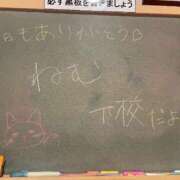 必ず黒板を書きましょう
今日もありがとう
ねむ
下校だよ